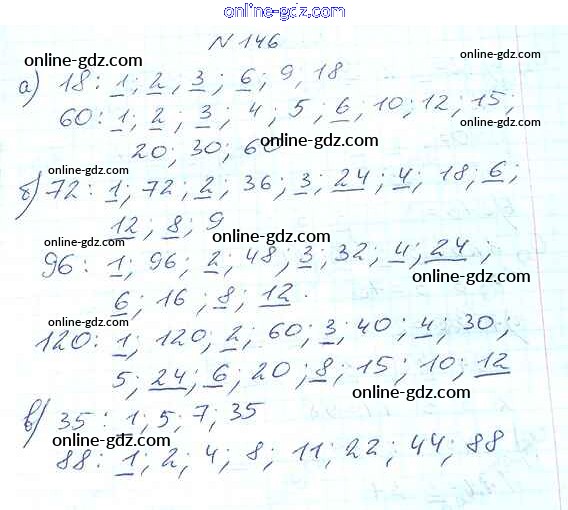 online-gdz.com
N 146
online-gdz.com online-gdz.com
а) 18: 1; 2; 3; 6; 9, 18
60: 1; 2; 3; 4; 5; 6, 10; 12; 15;
online-gdz.com
20; 30; 60
online-gdz.com
online-gdz.com
б) 72: 1; 72; 2; 36; 3; 24; 4; 18; 6;
12; 8; 9
online-gdz.com online-gdz.com
96: 1; 96; 2; 48; 3; 32; 4; 24;
online-gdz.com
6; 16; 8; 12.
online-gdz.com
120: 1; 120; 2; 60; 3; 40; 4; 30;
5; 24; 6; 20; 8; 15; 10; 12
online-gdz.com
online-gdz.com
в) 35: 1; 5; 7, 35
online-gdz.com
88: 1; 2; 4; 8; 11; 22; 44; 88